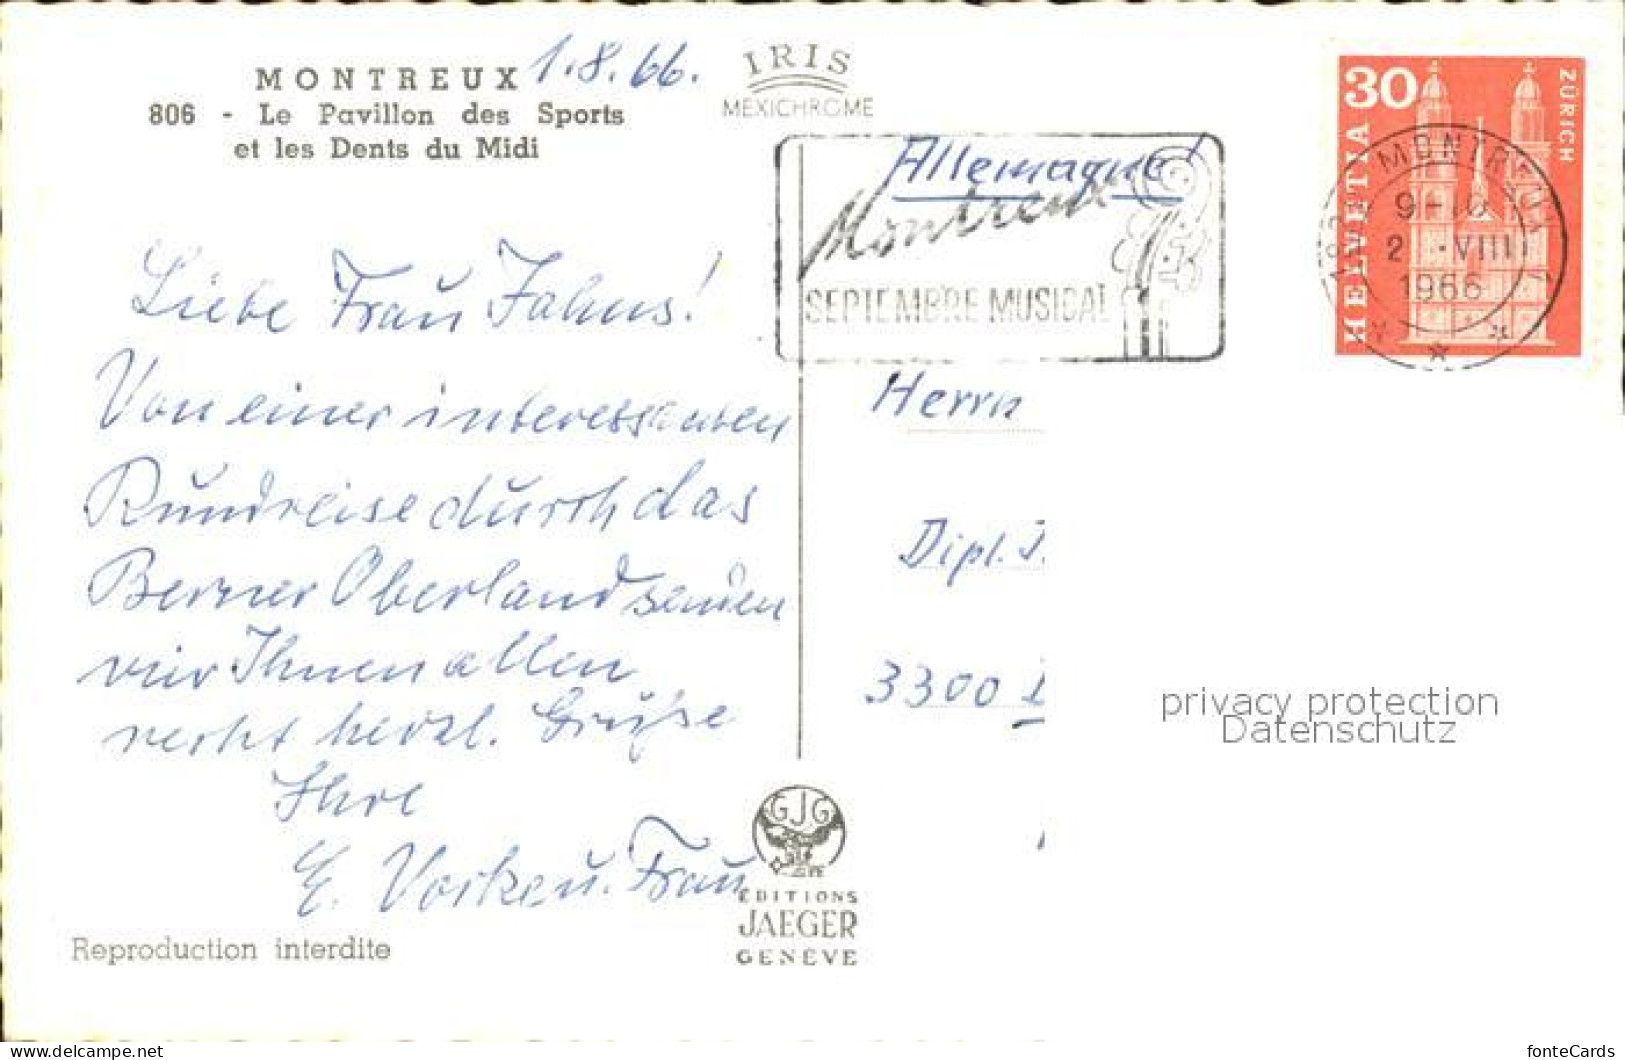 MONTREUX 1.8.66.
806 - Le Pavillon des Sports
et les Dents du Midi
IRIS
MEXICHROME
Allemagne!
Montreux
SEPTEMBRE MUSICAL
30
HELVETIA
ZÜRICH
MONTREUX 1
9-10
2.-VIII
1966
Liebe Frau Jahns!
Von einer interessanten
Rundreise durch das
Berner Oberland senden
wir Ihnen allen
recht herzl. Grüße
Ihre
E. Vorken u. Frau
Herrn
Dipl. I.
3300
privacy protection
Datenschutz
GJG
EDITIONS
JAEGER
GENÈVE
Reproduction interdite
fonteCards